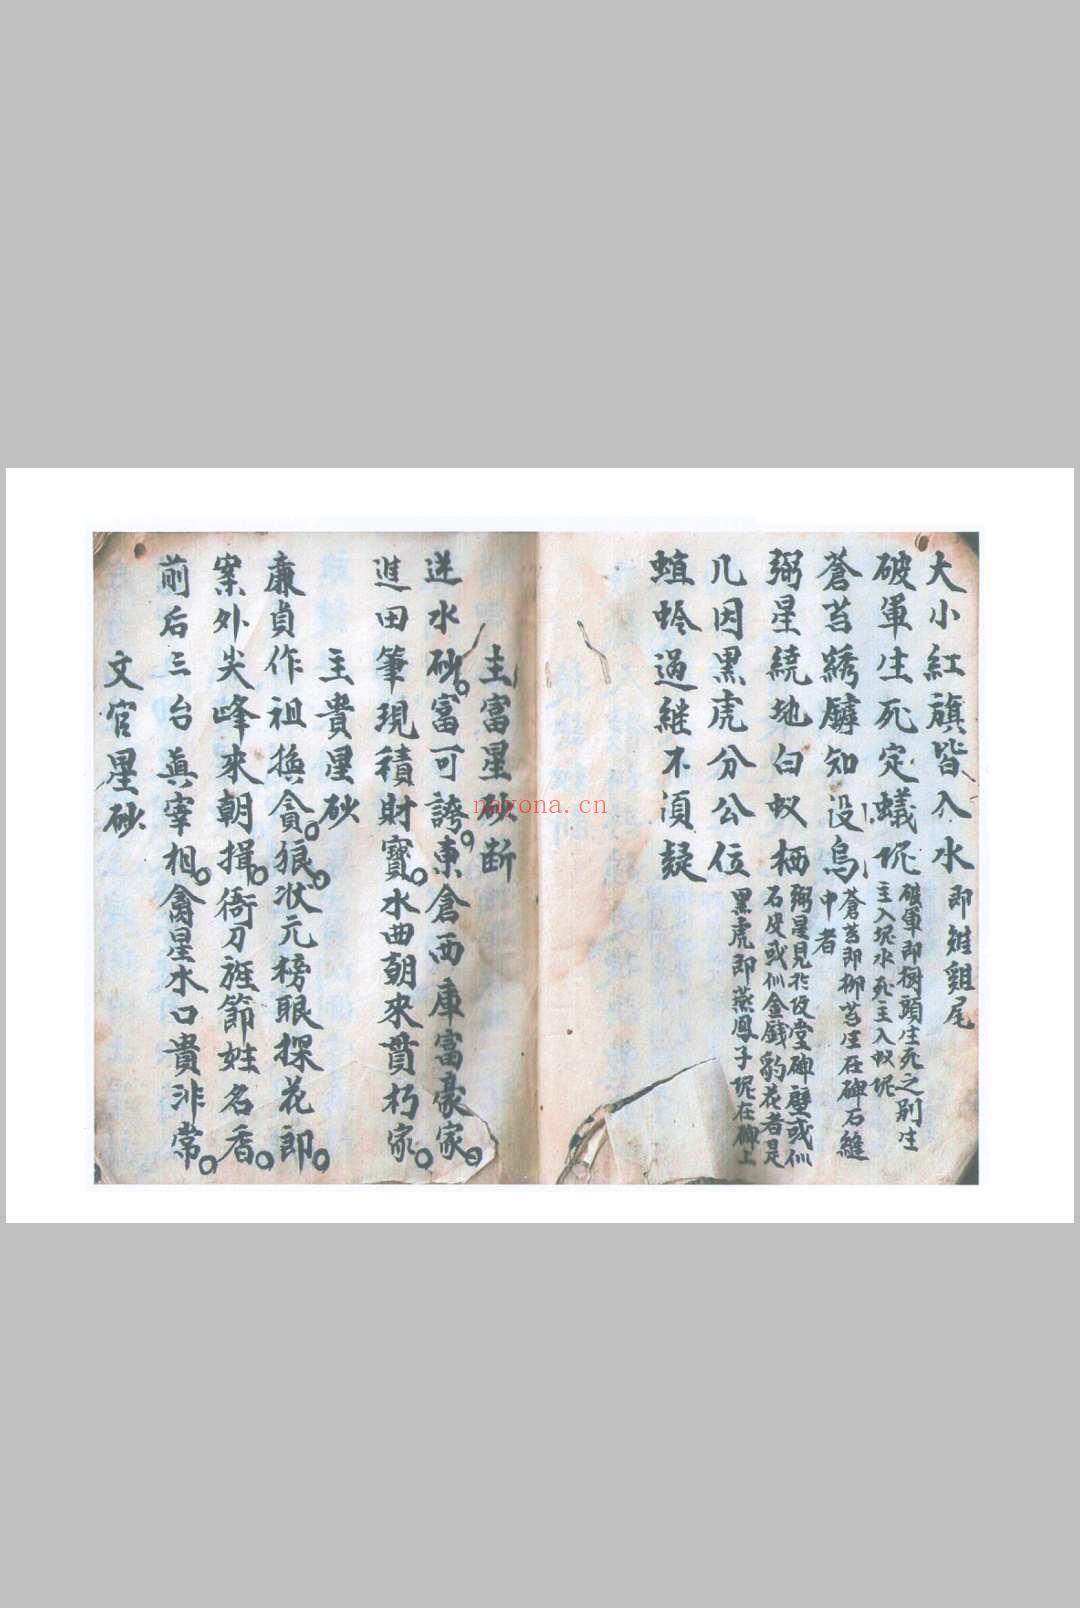 大小紅旗皆入水即雉雞尾
破軍生死定蟻坭破軍即樹頭生死之別生
主入坭水死主入蚁坭
蒼苔綉鐸知没烏蒼苔即柳岩生在碑石縫
中者
弼星繞地白蚁栖弼星見於后堂碑壁或似
石皮或似金錢豹衣者是
几因黑虎分公位黑虎即燕鳳子坭在碑上
蛆蛉過継不湏疑
主富星砂断
逆水砂富可誇東倉西庫富豪家
進田筆現積財寶水曲朝來貫朽家
主貴星砂
廉貞作祖換貪狼狀元榜眼探花郎
案外尖峰來朝揖衙刀旌節姓名香
前后三台眞宰相禽星水口貴非常
文官星砂
nayona.cn